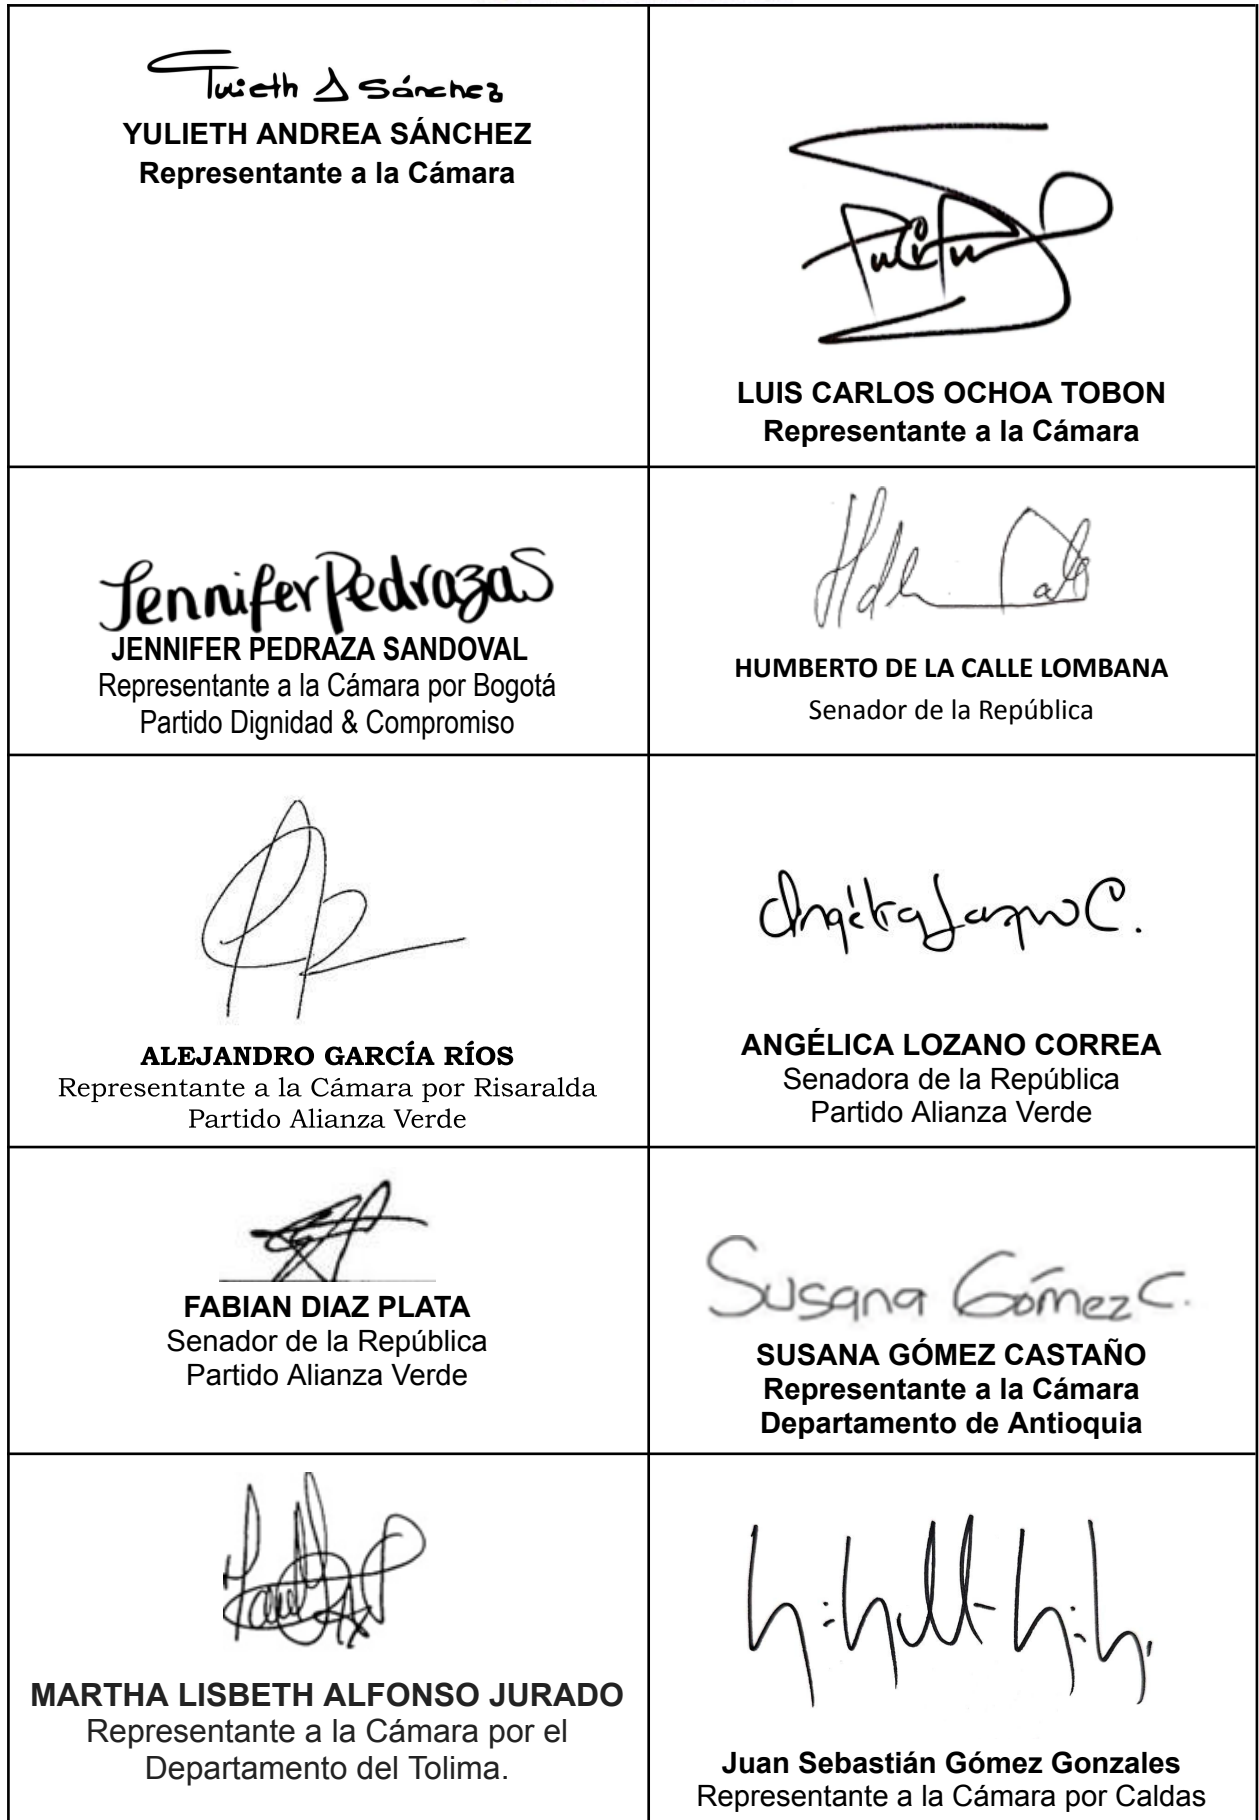 Yulieth A Sánchez
YULIETH ANDREA SÁNCHEZ
Representante a la Cámara
LUIS CARLOS OCHOA TOBON
Representante a la Cámara
Jennifer Pedraza S
JENNIFER PEDRAZA SANDOVAL
Representante a la Cámara por Bogotá
Partido Dignidad & Compromiso
HUMBERTO DE LA CALLE LOMBANA
Senador de la República
ALEJANDRO GARCÍA RÍOS
Representante a la Cámara por Risaralda
Partido Alianza Verde
Angélica Lozano C.
ANGÉLICA LOZANO CORREA
Senadora de la República
Partido Alianza Verde
FABIAN DIAZ PLATA
Senador de la República
Partido Alianza Verde
Susana Gómez C.
SUSANA GÓMEZ CASTAÑO
Representante a la Cámara
Departamento de Antioquia
MARTHA LISBETH ALFONSO JURADO
Representante a la Cámara por el
Departamento del Tolima.
Juan Sebastián Gómez Gonzales
Representante a la Cámara por Caldas